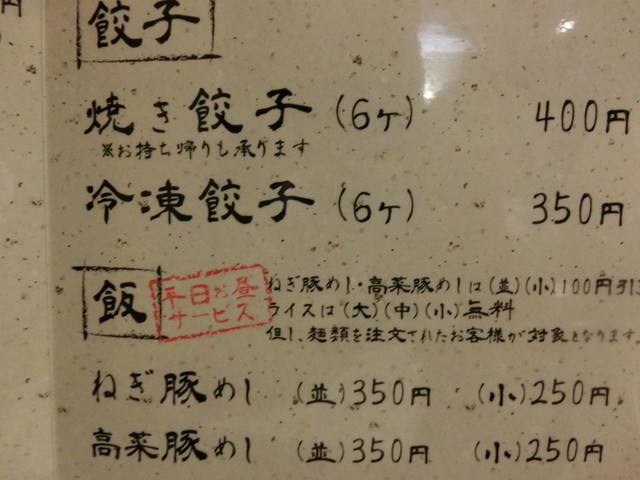 円
餃子
焼き餃子 (6ケ) 400円
※お持ち帰りも承ります
冷凍餃子 (6ケ) 350円
飯
平日お昼
サービス
ねぎ豚めし・高菜豚めしは(並)(小)100円引
ライスは(大)(中)(小)無料
但し、麺類を注文されたお客様が対象となります。
ねぎ豚めし (並)350円 (小)250円
高菜豚めし (並)350円 (小)250円